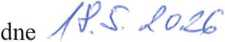 dne 18.5.2026